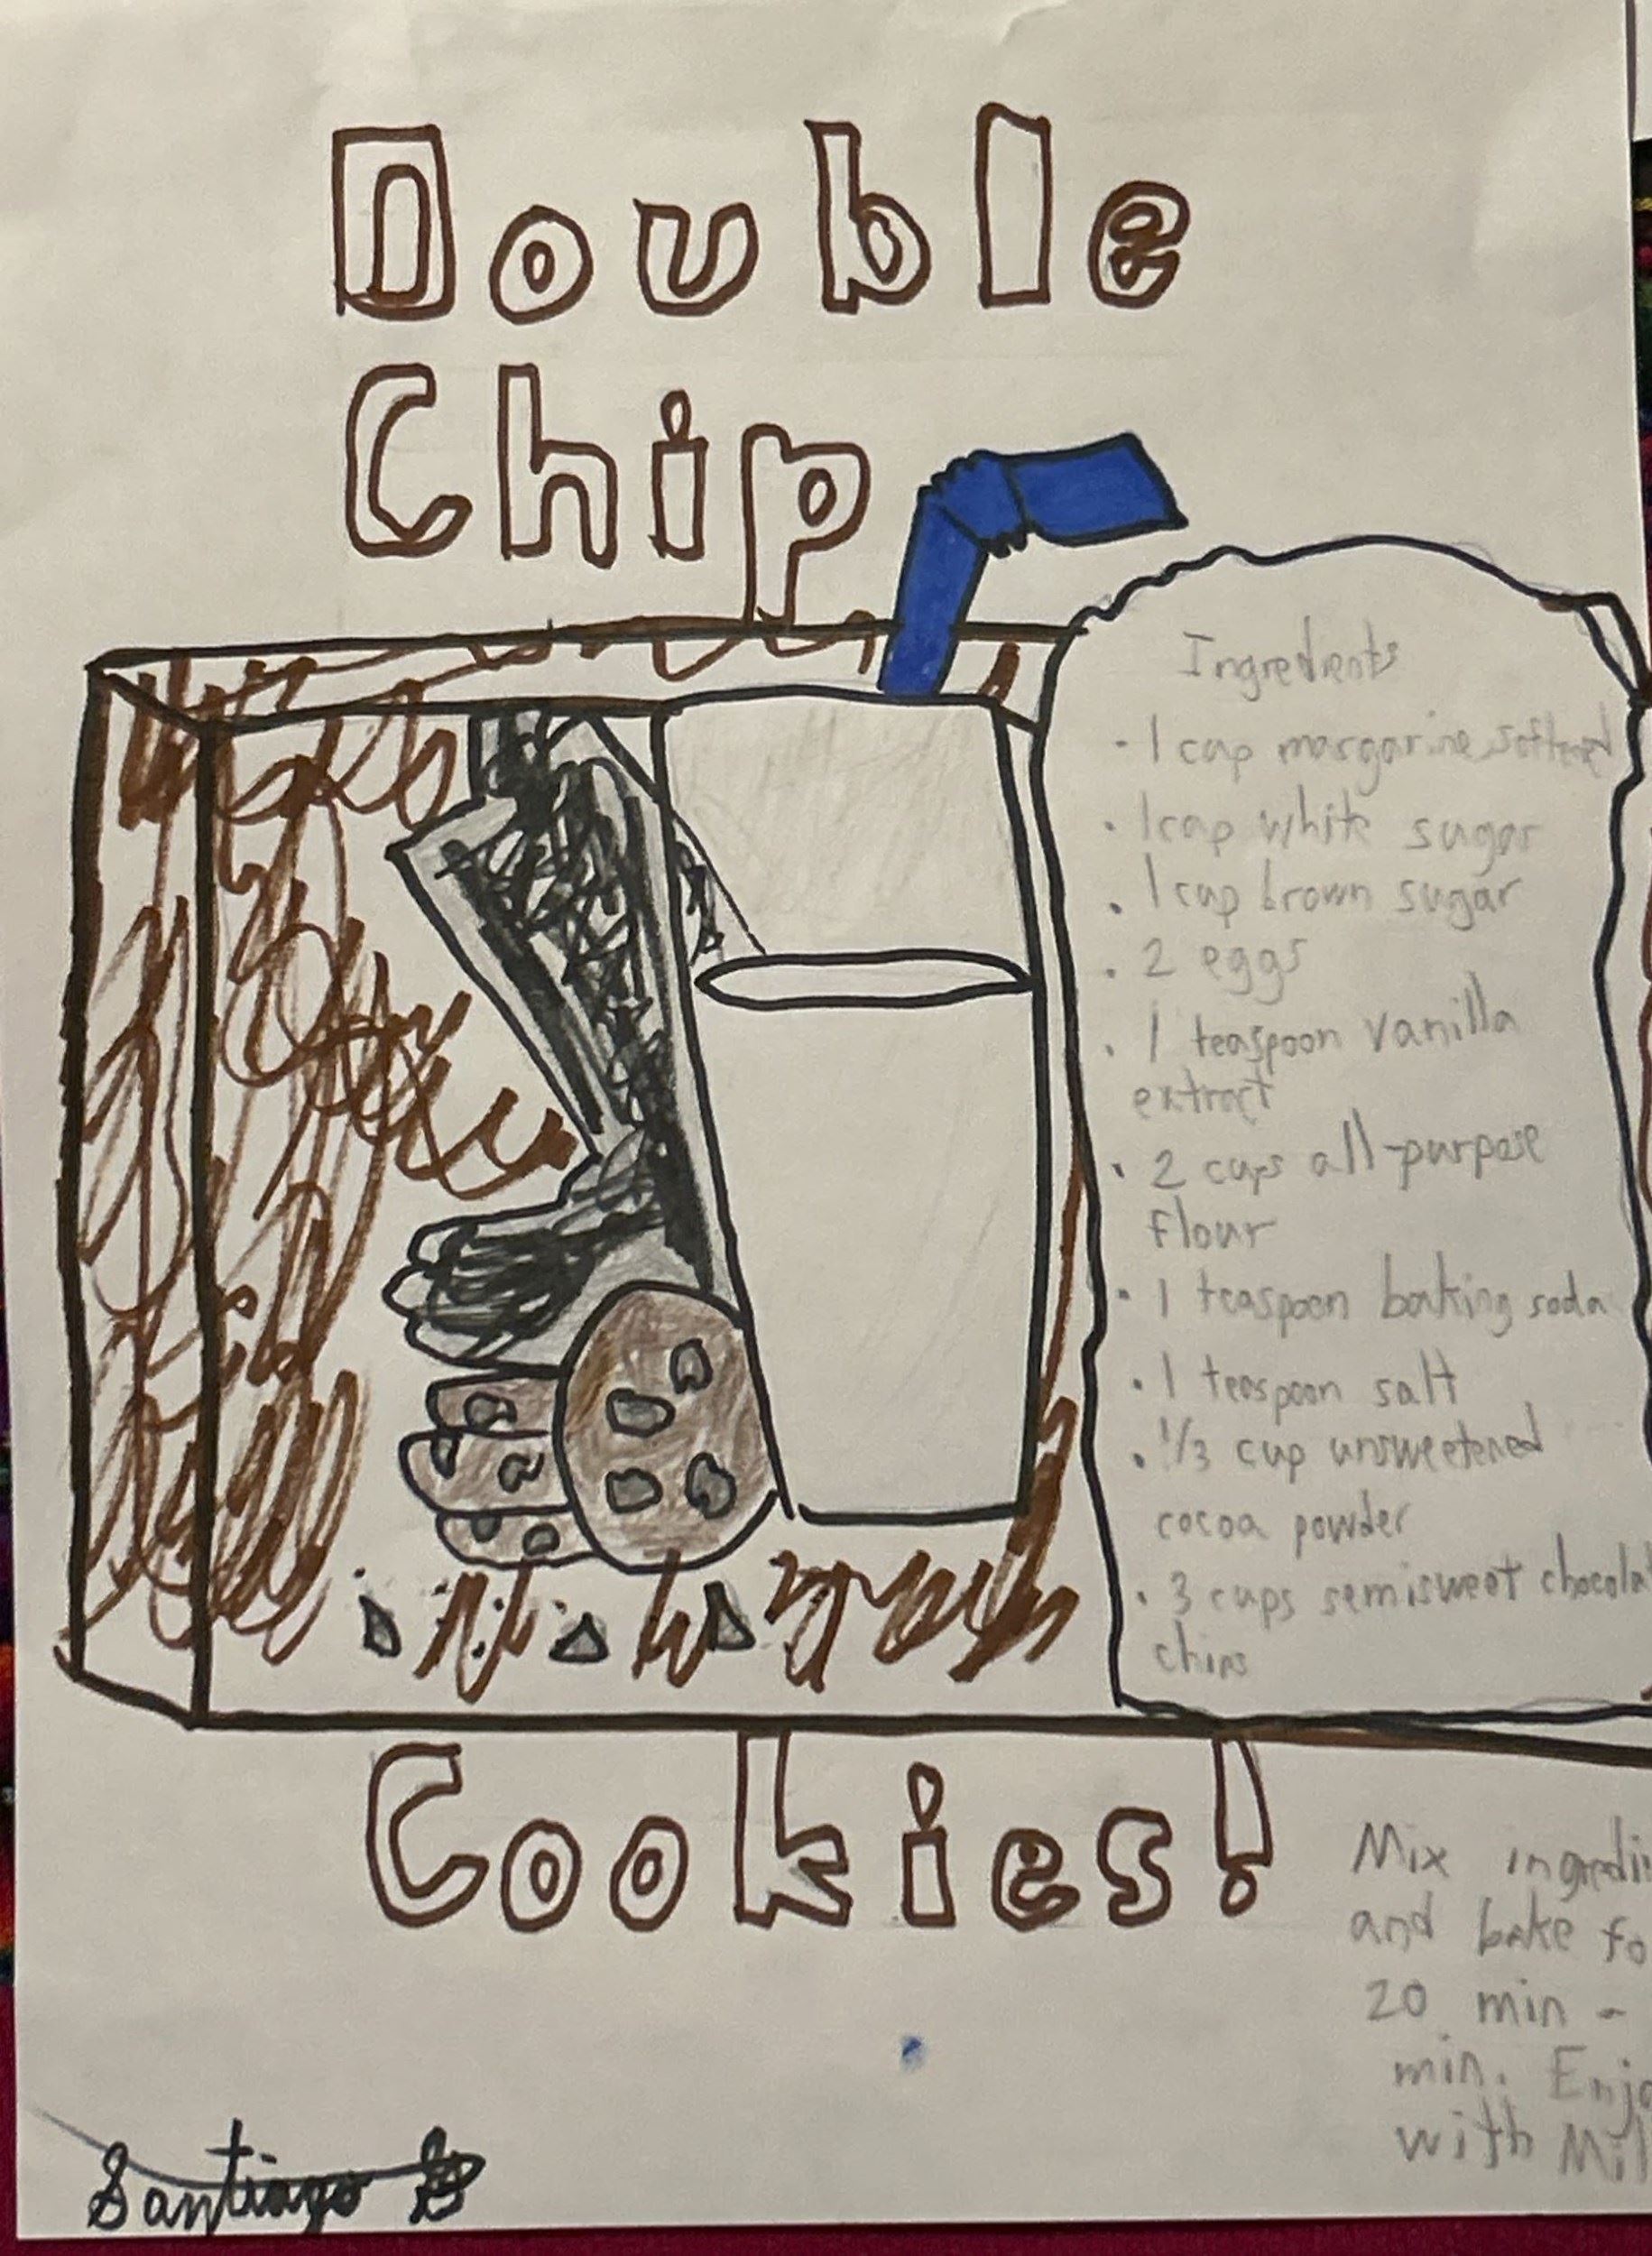 Double
Chip
Ingredients
- 1 cup margarine softened
• 1 cup white sugar
• 1 cup brown sugar
• 2 eggs
• 1 teaspoon vanilla
extract
• 2 cups all-purpose
flour
• 1 teaspoon baking soda
• 1 teaspoon salt
• 1/3 cup unsweetened
cocoa powder
• 3 cups semisweet chocola
chips
Cookies!
Mix ingredi
and bake fo
20 min -
min. Enjo
with Mil
Santiago